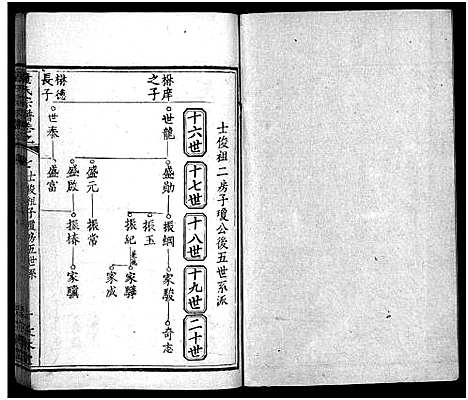 士俊祖二房子瓊公後五世系派
十六世
十七世
十八世
十九世
二十世
楙庠之子
世龍
盛勛
振綱
家駿
奇志
振玉
振紀
家驛
家成
盛元
振常
盛啟
振椿
家驥
楙德長子
世泰
盛富
氏宗譜卷之
士俊祖子瓊房五世系